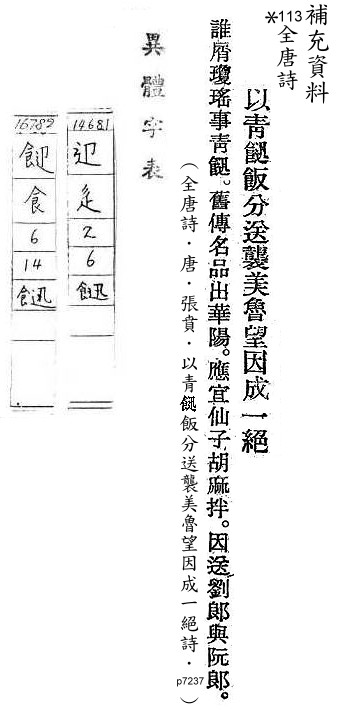 補充資料
*113 全唐詩
以青𩜾飯分送襲美魯望因成一絕
誰屑瓊瑤事青𩜾。舊傳名品出華陽。應宜仙子胡麻拌。因送劉郎與阮郎。
(全唐詩．唐．張賁．以青𩜾飯分送襲美魯望因成一絕詩．p7237)
異體字表
14681
辵
2
6
𩜾
16789
食
6
14
𩜾